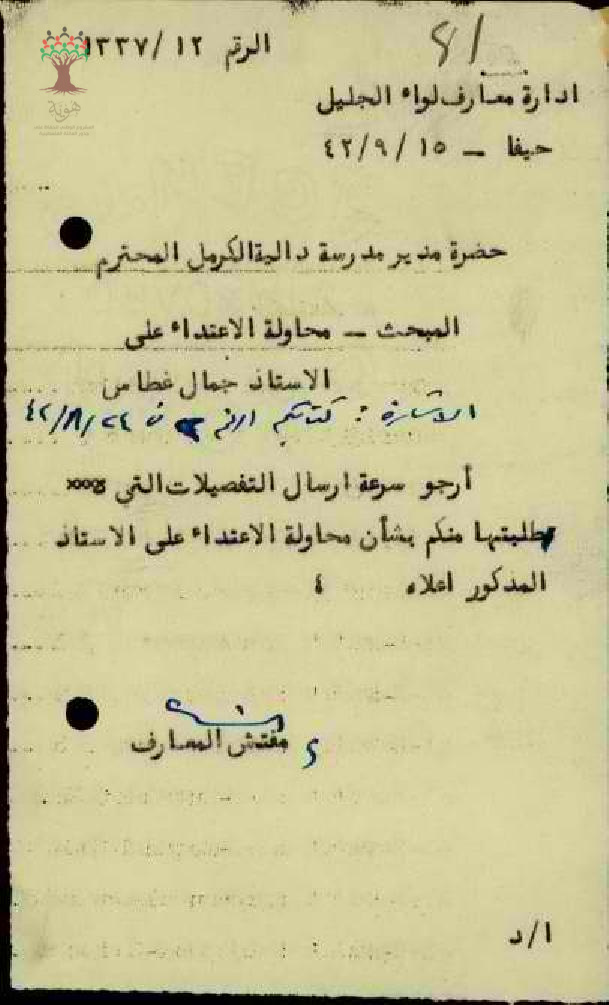 الرقم ١٢/ ١٣٣٧
ادارة معارف لواء الجليل
حيفا – ١٥/ ٩/ ٤٢
هوية
حضرة مدير مدرسة دالية الكرمل المحترم
المبحث – محاولة الاعتداء على
الاستاذ جمال غطاس
الاشارة : كتابكم ٤٢/٨/٢٤
أرجو سرعة ارسال التفصيلات التي
طلبتها منكم بشأن محاولة الاعتداء على الاستاذ
المذكور اعلاه ٤
مفتش المعارف
ا/د